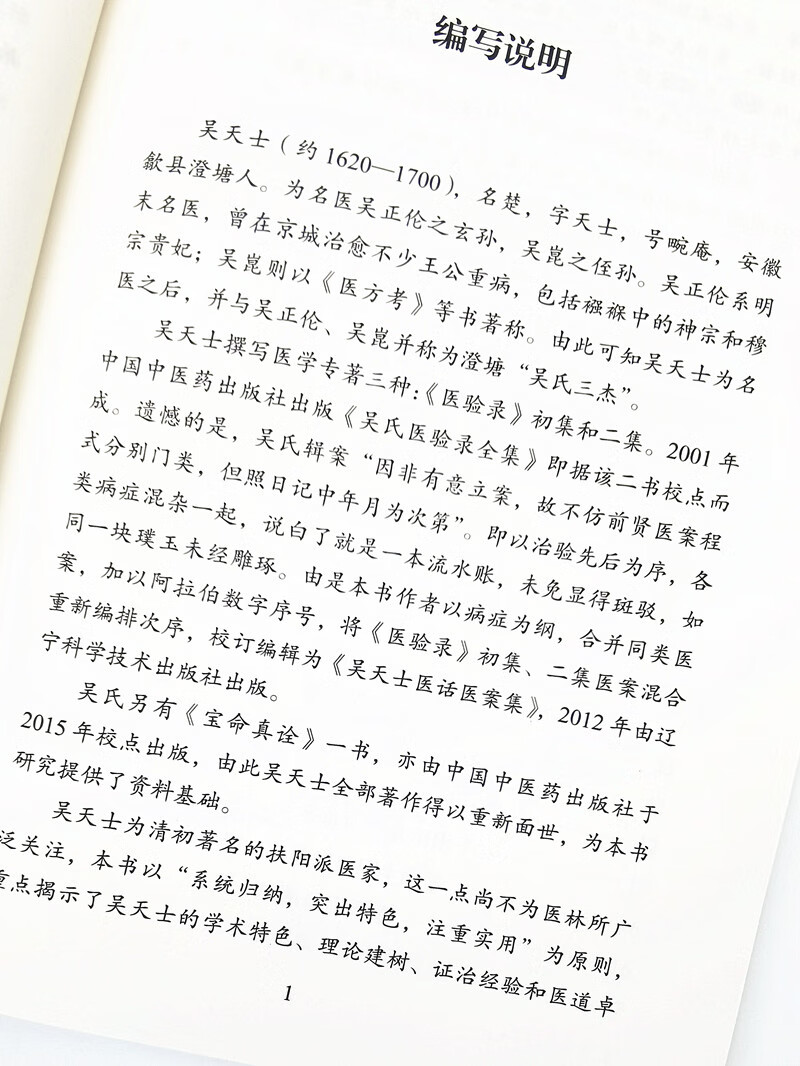 编写说明
吴天士（约1620—1700），名楚，字天士，号畹庵，安徽
歙县澄塘人。为名医吴正伦之玄孙，吴崑之侄孙。吴正伦系明
末名医，曾在京城治愈不少王公重病，包括襁褓中的神宗和穆
宗贵妃；吴崑则以《医方考》等书著称。由此可知吴天士为名
医之后，并与吴正伦、吴崑并称为澄塘“吴氏三杰”。
吴天士撰写医学专著三种：《医验录》初集和二集。2001年
中国中医药出版社出版《吴氏医验录全集》即据该二书校点而
成。遗憾的是，吴氏辑案“因非有意立案，故不仿前贤医案程
式分别门类，但照日记中年月为次第”。即以治验先后为序，各
类病症混杂一起，说白了就是一本流水账，未免显得斑驳，如
同一块璞玉未经雕琢。由是本书作者以病症为纲，合并同类医
案，加以阿拉伯数字序号，将《医验录》初集、二集医案混合
重新编排次序，校订编辑为《吴天士医话医案集》，2012年由辽
宁科学技术出版社出版。
吴氏另有《宝命真诠》一书，亦由中国中医药出版社于
2015年校点出版，由此吴天士全部著作得以重新面世，为本书
研究提供了资料基础。
吴天士为清初著名的扶阳派医家，这一点尚不为医林所广
泛关注，本书以“系统归纳，突出特色，注重实用”为原则，
重点揭示了吴天士的学术特色、理论建树、证治经验和医道卓
1